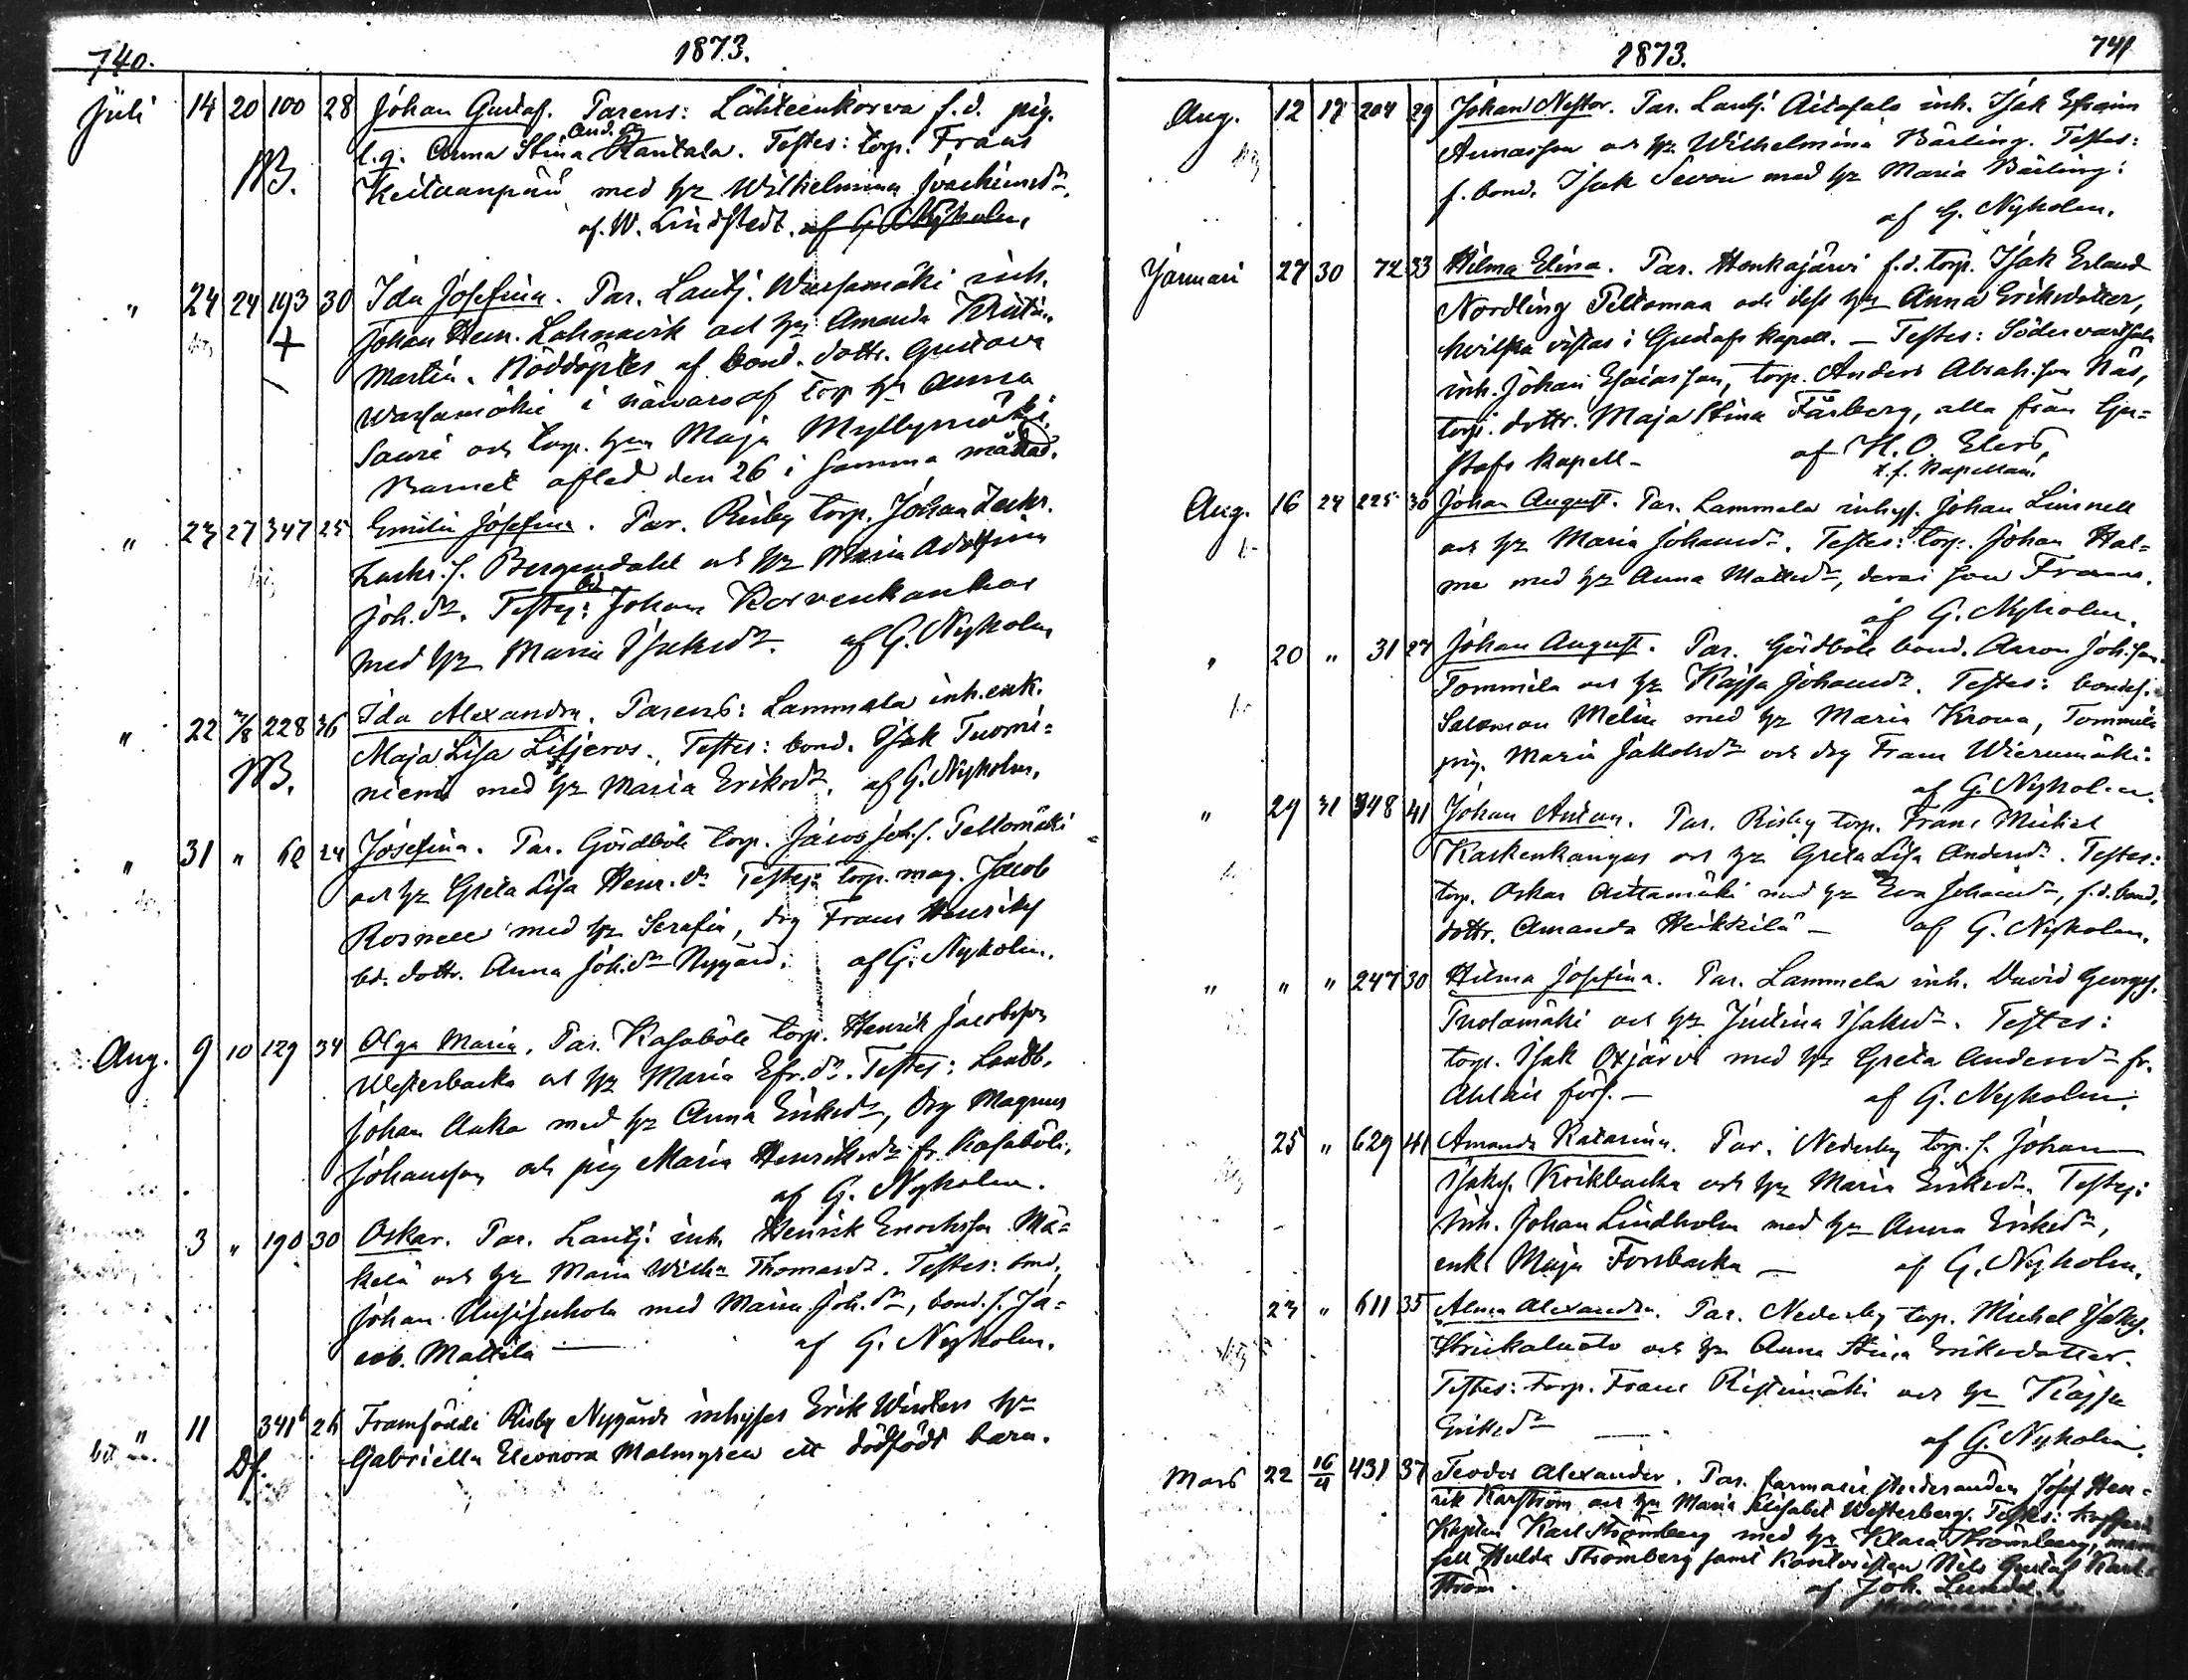 740. 1873.
Juli 14 20 100 28 Johan Gustaf. Parens: Lähteenkorva f.d. pig.
l.q. Anna Stina And.dr Rantala. Testes: torp. Frans
NB. Keitaanpää med hu Wilhelmina Joachimsdr.
af. W. Lindstedt. af G. Nyholm.
" 24 24 193 30 Ida Josefina. Par. Lautj. Warsamäki inh.
+ Johan Henr. Lahnavik och hu Amanda
Martin. Nöddöptes af bond. dottr. Gustava
Warsamäki i närvaro af torp. hu Anna
Sauri och torp. hu Maja Myllymäki.
Barnet afled den 26 i samma månad.
" 23 27 347 25 Emilia Josefina. Par. Risby torp. Johan Zachr.
Zachr.s. Bergendahl och hu Maria Adolfina
Joh.dr. Testes: bd Johan Korvenkanhas
med hu Maria Isaksdr. af G. Nyholm
" 22 3/8 228 36 Ida Alexandra. Parens: Lammala inh.enk.
NB. Maja Lisa Liljeros. Testes: bond. Isak Tuomi=
niemi med hu Maria Eriksdr. af G. Nyholm.
" 31 " 62 24 Josefina. Par. Gördböle torp. Jacob Joh.s. Peltomäki
och hu Greta Lisa Henr.dr Testes: torp. mag. Jacob
Rosnell med hu Serafia, drg Frans Henriks
bd. dottr. Anna Joh.dr Nygård. af G. Nyholm.
Aug. 9 10 129 34 Olga Maria. Par. Kasaböle torp. Henrik Jacobsson
Westerbacka och hu Maria Efr.dr. Testes: Landb.
Johan Anka med hu Anna Eriksdr, drg Magnus
Johansson och pig Maria Henriksdr fr. Kasaböle.
af G. Nyholm.
3 " 190 30 Oskar. Par. Lautj. inh. Henrik Enochsson Mä=
kelä och hu Maria Wilha Thomasdr. Testes: bond.
Johan Uusijuhola med Maria Joh.dr, bond.s. Ja=
cob. Mattila — af G. Nyholm.
" 11 341 26 Framfödde Risby Nygårds inhyses Erik Winters hu
Df. Gabriella Eleonora Malmgren ett dödfödt barn.
1873. 741
Aug. 12 17 204 29 Johan Nestor. Par. Lautj. Aitasalo inh. Isak Efraim
Annasson och hu Wilhelmina Bärling. Testes:
f. bond. Isak Sevon med hu Maria Bärling:
af G. Nyholm.
Januari 27 30 72 33 Hilma Elina. Par. Honkajärvi f.d. torp. Isak Erland
Nordling Peltomaa och dess hu Anna Eriksdotter,
hvilka vistas i Gustafs kapell. — Testes: Södervartsala
inh. Johan Esaiasson, torp. Anders Abrah.son Näs,
torp. dottr. Maja Stina Färberg, alla från Gu=
stafs kapell — af H. O. Elers,
t.f. Kapellan.
Aug. 16 24 225 30 Johan August. Par. Lammala inhys. Johan Linnell
och hu Maria Johansdr. Testes: torp. Johan Hol=
me med hu Anna Mattsdr, deras son Frans.
af G. Nyholm.
" 20 " 31 27 Johan August. Par. Gördböle bond. Aaron Joh.son
Tommila och hu Kajsa Johansdr. Testes: bondes.
Salomon Melin med hu Maria Krona, Tommila
pig. Maria Jakobsdr och drg Frans Wierumäki.
af G. Nyholm.
" 29 31 348 41 Johan Anton. Par. Risby torp. Frans Michel
Kaskenkangas och hu Greta Lisa Andersdr. Testes:
torp. Oskar Aittamäki med hu Eva Johansdr, f.d. bond.
dottr. Amanda Heikkilä — af G. Nyholm.
" " " 247 30 Hilma Josefina. Par. Lammela inh. David Georgs.
Tuolamäki och hu Justina Isaksdr. Testes:
torp. Isak Oxjärvi med hu Greta Andersdr fr.
Ahlais förs. — af G. Nyholm.
25 " 629 41 Amanda Katarina. Par. Nederby torp.s. Johan
Isaks. Krikbacka och hu Maria Eriksdr. Testes:
inh. Johan Lindholm med hu Anna Eriksdr,
enk. Maja Forsbacka — af G. Nyholm.
23 " 611 35 Alma Alexandra. Par. Nederby torp. Michel Isaks.
Storkaluoto och hu Anna Stina Eriksdotter.
Testes: torp. Frans Ristimäki och hu Kajsa
Eriksdr — af G. Nyholm.
Mars 22 16/4 431 37 Teodor Alexander. Par. farmacie studeranden Josef Hen=
rik Karström och hu Maria Elisabet Westerberg. Testes:
Kapten Karl Strömberg med hu Klara Strömberg, mam
sell Hulda Strömberg samt Kontoristen Nils Gustaf Kar=
ström. af Joh. Lundd